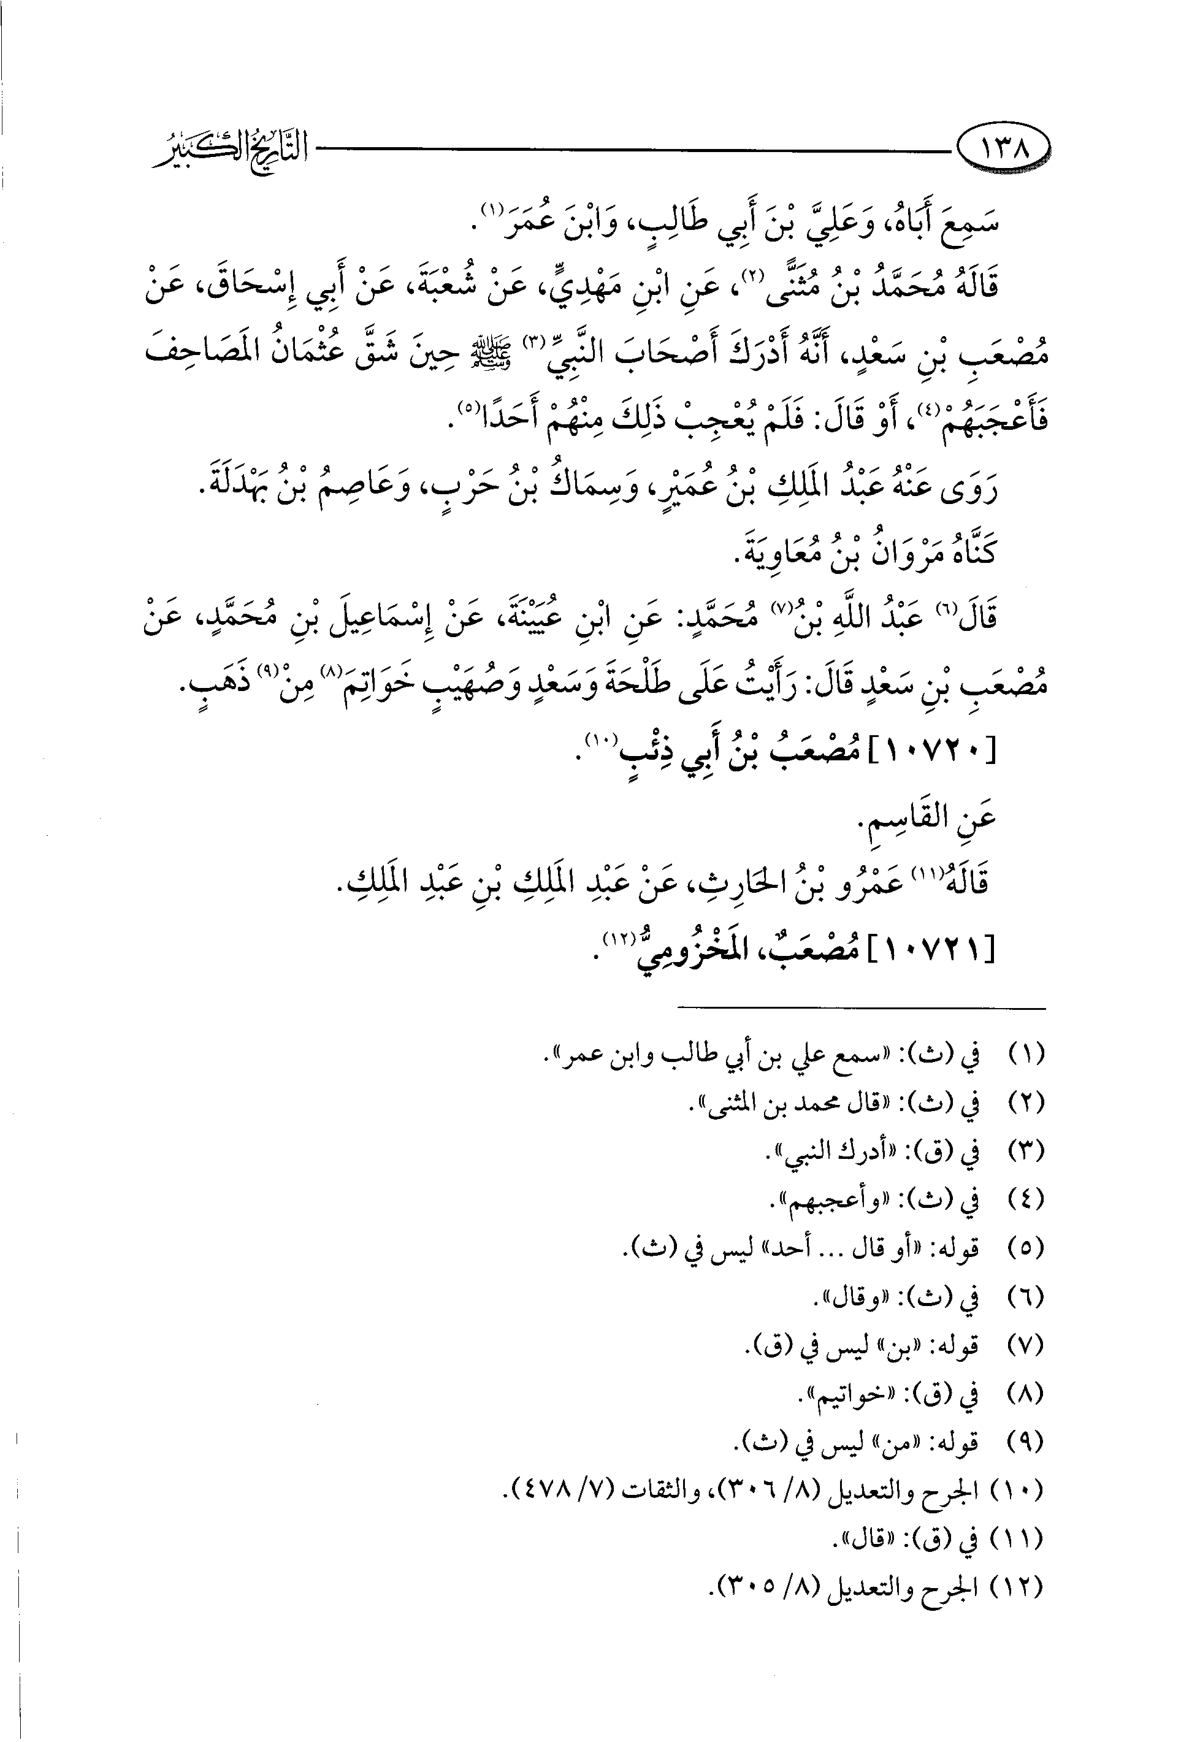 ١٣٨ التَّارِيخُ الكَبِيرُ
سَمِعَ أَبَاهُ، وَعَلِيَّ بْنَ أَبِي طَالِبٍ، وَابْنَ عُمَرَ(١).
قَالَهُ مُحَمَّدُ بْنُ مُثَنًّى(٢)، عَنِ ابْنِ مَهْدِيٍّ، عَنْ شُعْبَةَ، عَنْ أَبِي إِسْحَاقَ، عَنْ
مُصْعَبِ بْنِ سَعْدٍ، أَنَّهُ أَدْرَكَ أَصْحَابَ النَّبِيِّ(٣) ﷺ حِينَ شَقَّ عُثْمَانُ المَصَاحِفَ
فَأَعْجَبَهُمْ(٤)، أَوْ قَالَ: فَلَمْ يُعْجِبْ ذَلِكَ مِنْهُمْ أَحَدًا(٥).
رَوَى عَنْهُ عَبْدُ المَلِكِ بْنُ عُمَيْرٍ، وَسِمَاكُ بْنُ حَرْبٍ، وَعَاصِمُ بْنُ بَهْدَلَةَ.
كَنَّاهُ مَرْوَانُ بْنُ مُعَاوِيَةَ.
قَالَ(٦) عَبْدُ اللَّهِ بْنُ(٧) مُحَمَّدٍ: عَنِ ابْنِ عُيَيْنَةَ، عَنْ إِسْمَاعِيلَ بْنِ مُحَمَّدٍ، عَنْ
مُصْعَبِ بْنِ سَعْدٍ قَالَ: رَأَيْتُ عَلَى طَلْحَةَ وَسَعْدٍ وَصُهَيْبٍ خَوَاتِمَ(٨) مِنْ(٩) ذَهَبٍ.
[١٠٧٢٠] مُصْعَبُ بْنُ أَبِي ذِئْبٍ(١٠).
عَنِ القَاسِمِ.
قَالَهُ(١١) عَمْرُو بْنُ الحَارِثِ، عَنْ عَبْدِ المَلِكِ بْنِ عَبْدِ المَلِكِ.
[١٠٧٢١] مُصْعَبٌ، المَخْزُومِيُّ(١٢).
(١) في (ث): «سمع علي بن أبي طالب وابن عمر».
(٢) في (ث): «قال محمد بن المثنى».
(٣) في (ق): «أدرك النبي».
(٤) في (ث): «وأعجبهم».
(٥) قوله: «أو قال ... أحد» ليس في (ث).
(٦) في (ث): «وقال».
(٧) قوله: «بن» ليس في (ق).
(٨) في (ق): «خواتيم».
(٩) قوله: «من» ليس في (ث).
(١٠) الجرح والتعديل (٨/ ٣٠٦)، والثقات (٧/ ٤٧٨).
(١١) في (ق): «قال».
(١٢) الجرح والتعديل (٨/ ٣٠٥).